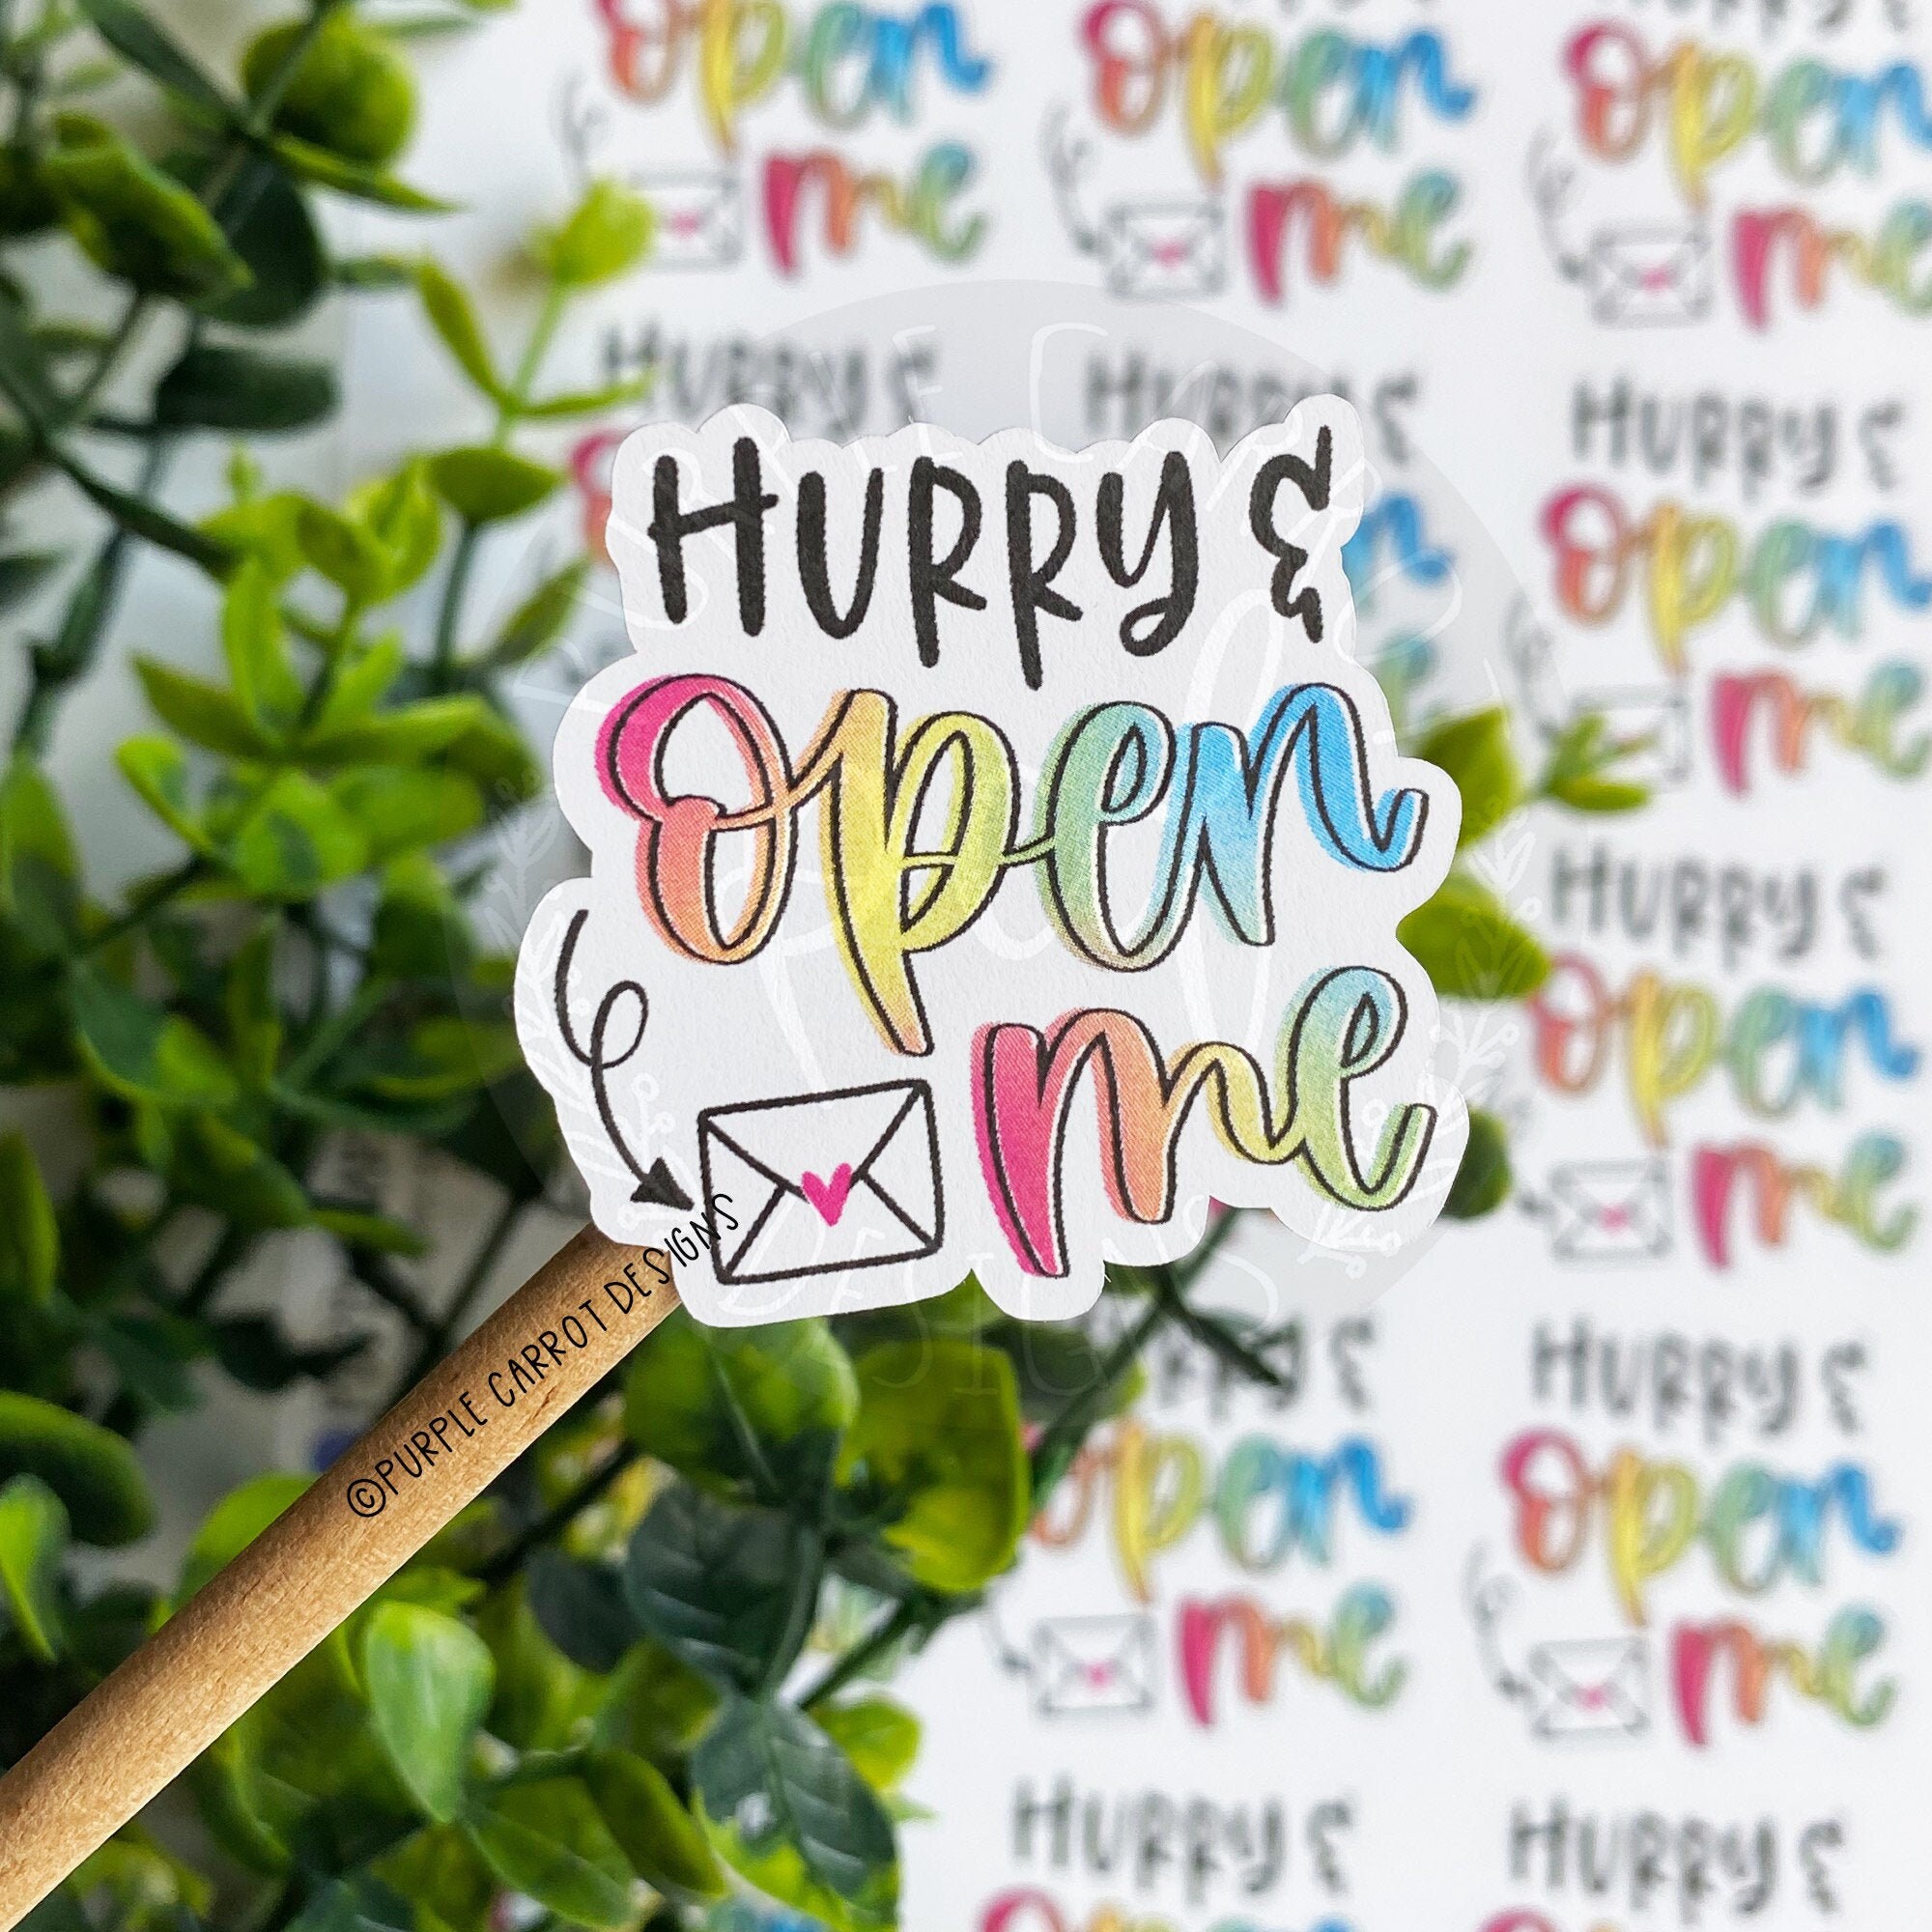 HURRY &
open
me
©PURPLE CARROT DESIGNS
PURPLE CARROT
Purple
DESIGNS
open
me
open
me
open
me
HURRY &
HURRY &
HURRY &
open
me
HURRY &
open
me
HURRY &
open
me
HURRY &
open
me
HURRY &
HURRY &